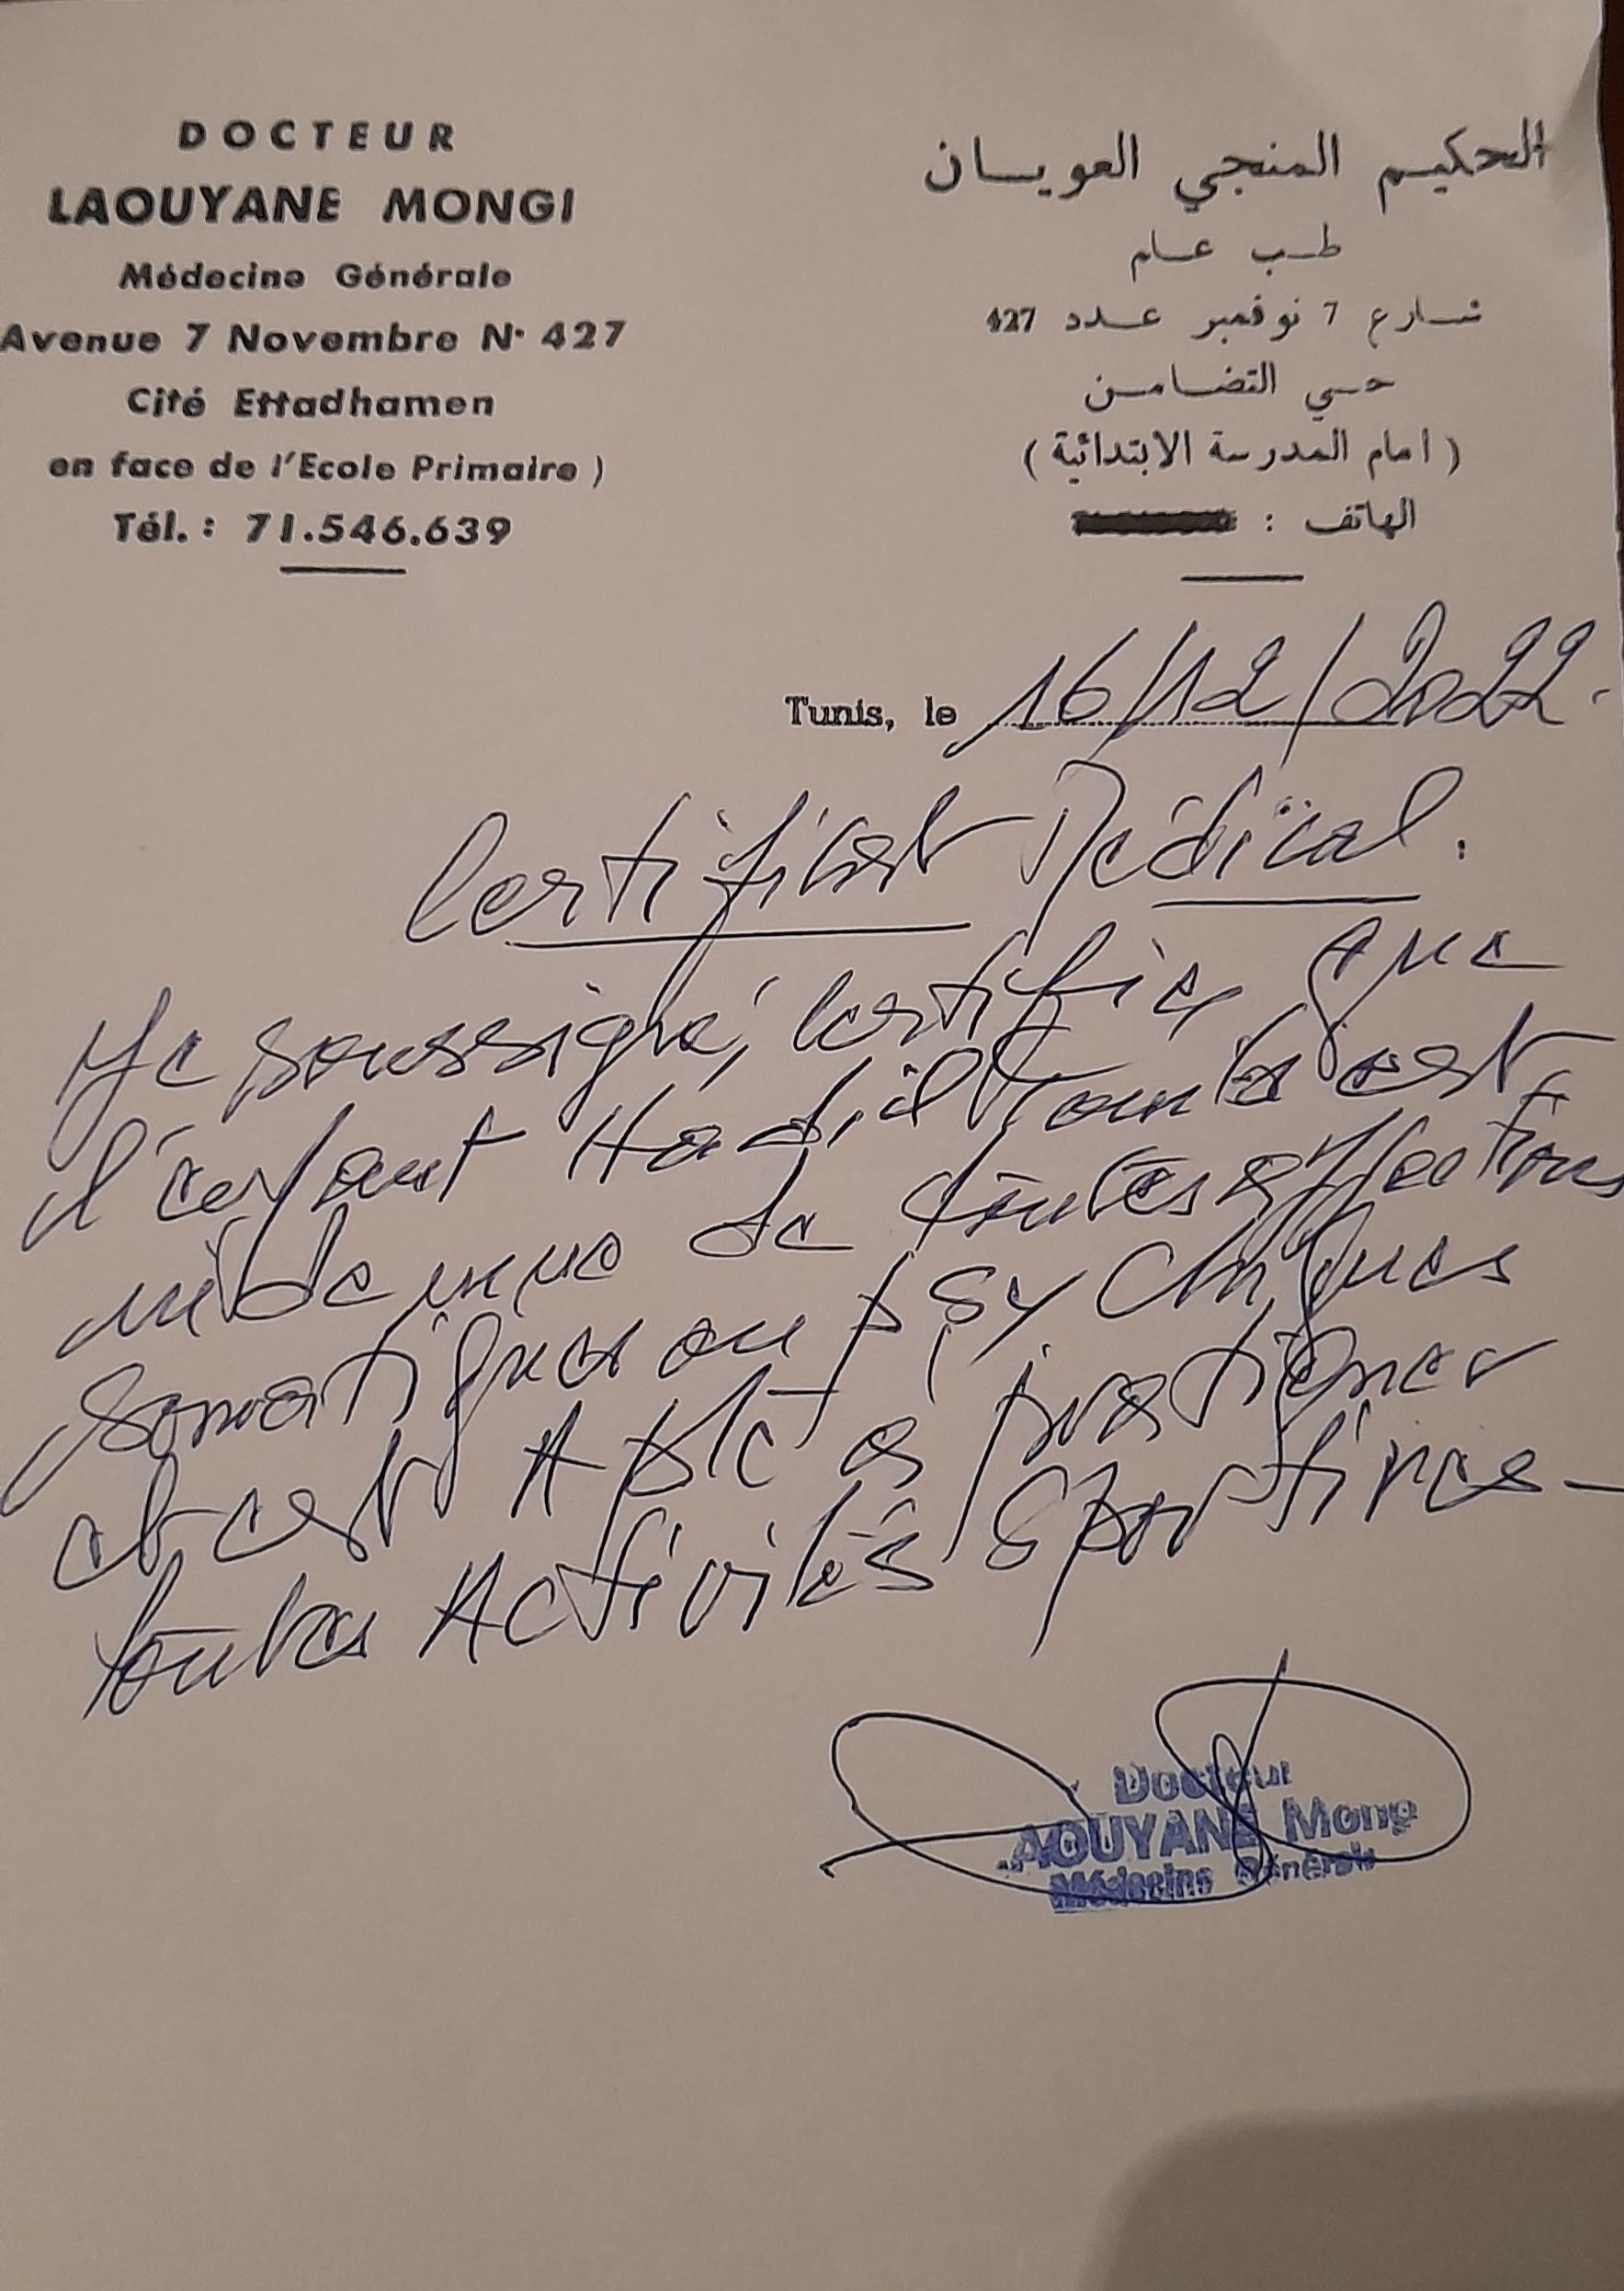 DOCTEUR
LAOUYANE MONGI
Médecine Générale
Avenue 7 Novembre N° 427
Cité Ettadhamen
en face de l'Ecole Primaire )
Tél. : 71.546.639
الحكيم المنجي العويسان
طب عام
شارع 7 نوفمبر عدد 427
حي التضامن
( امام المدرسة الابتدائية )
الهاتف :
Tunis, le 16/12/2022.
Certificat Médical :
Je soussigné, certifie que
l'enfant Hadil est
indemne de toutes affections
somatiques ou psychiques
et est Apte à pratiquer
toutes Activités Sportives
Docteur
AOUYANE Mong
Médecine Générale